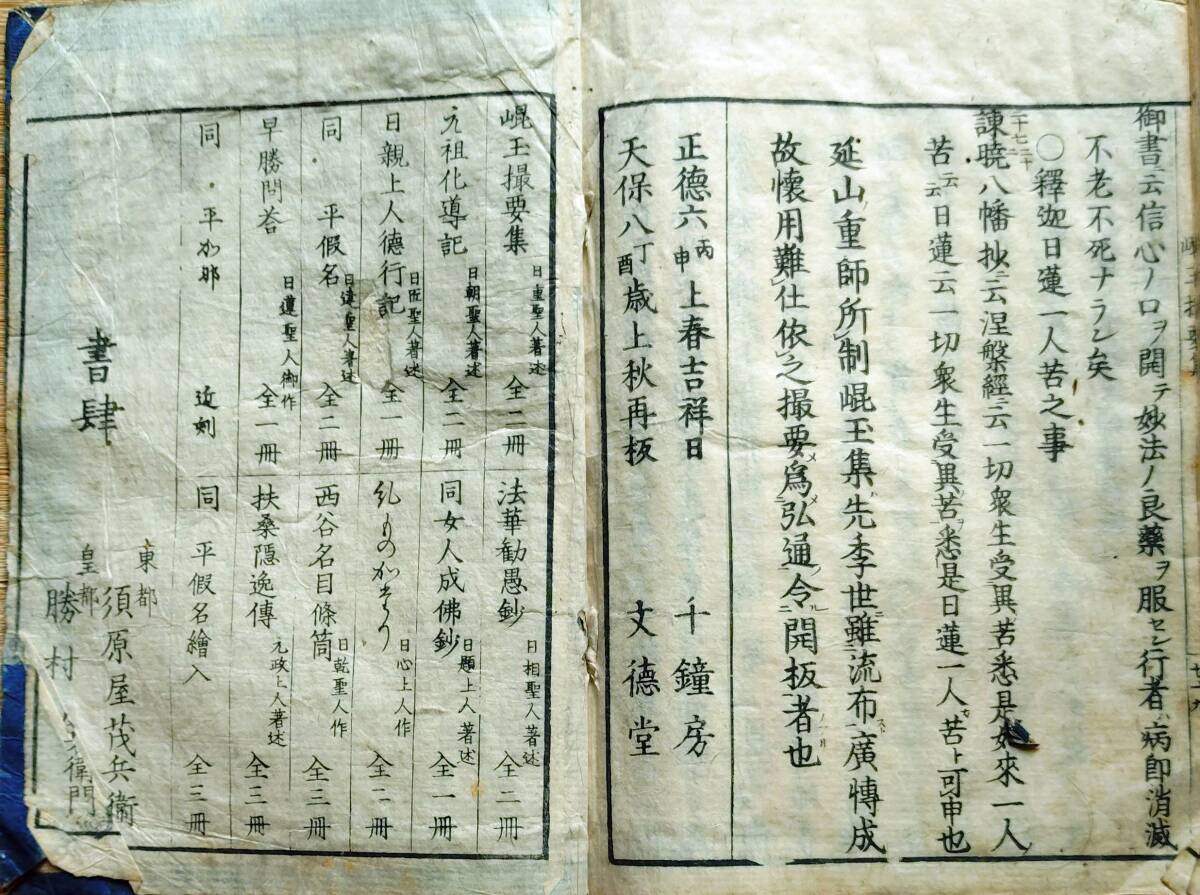 御書ニ云信心ノ口ヲ開テ妙法ノ良藥ヲ服セシ行者ハ病即消滅
不老不死ナラン矣
〇釋迦日蓮一人苦之事
諫曉八幡抄ニ云涅槃經ニ云一切衆生受異苦悉是如來一人
苦云云日蓮云一切衆生受異苦悉是日蓮一人苦ト可申也
延山重師所制崐玉集先季世雖流布廣博成
故懷用難仕依之撮要爲弘通令開板者也
正德六丙申上春吉祥日 千鐘房
天保八丁酉歲上秋再板 文德堂
崐玉撮要集 日重聖人著述 全二冊
法華勸愚鈔 日相聖人著述 全二冊
元祖化導記 日朝聖人著述 全二冊
同女人成佛鈔 日題上人著述 全一冊
日親上人德行記 日匠聖人著述 全一冊
日心上人作 全二冊
同 平假名 日達聖人著述 全二冊
西谷名目條箇 日乾聖人作 全三冊
早勝問答 日遵聖人御作 全一冊
扶桑隱逸傳 元政上人著述 全三冊
同 平かな 近刻
同 平假名繪入 全三冊
書肆
東都 須原屋茂兵衞
皇都 勝村 衛門